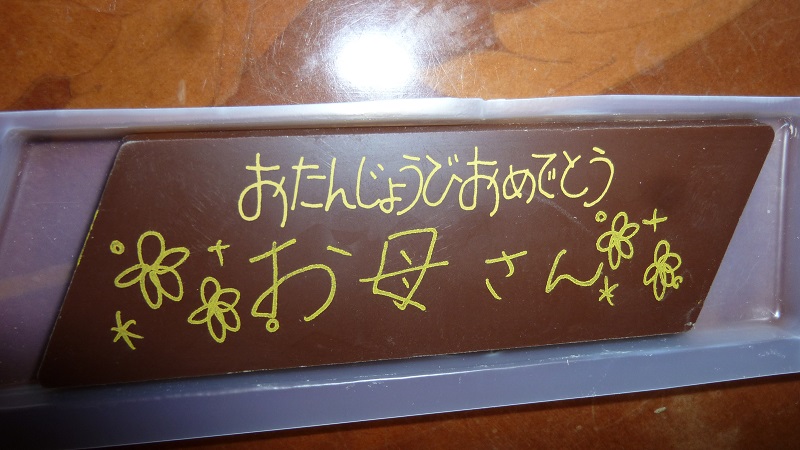 おたんじょうびおめでとう
お母さん